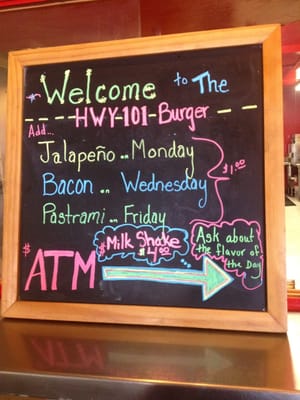 Welcome to The
HWY-101-Burger
Add...
Jalapeño on Monday
Bacon on Wednesday
$1.00
Pastrami on Friday
Milk Shake
$4.00
Ask about
the flavor of
the Day
$
ATM